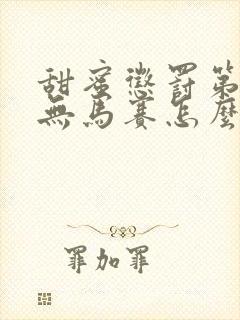 甜蜜懲罰第
無馬賽怎麼
罪加罪